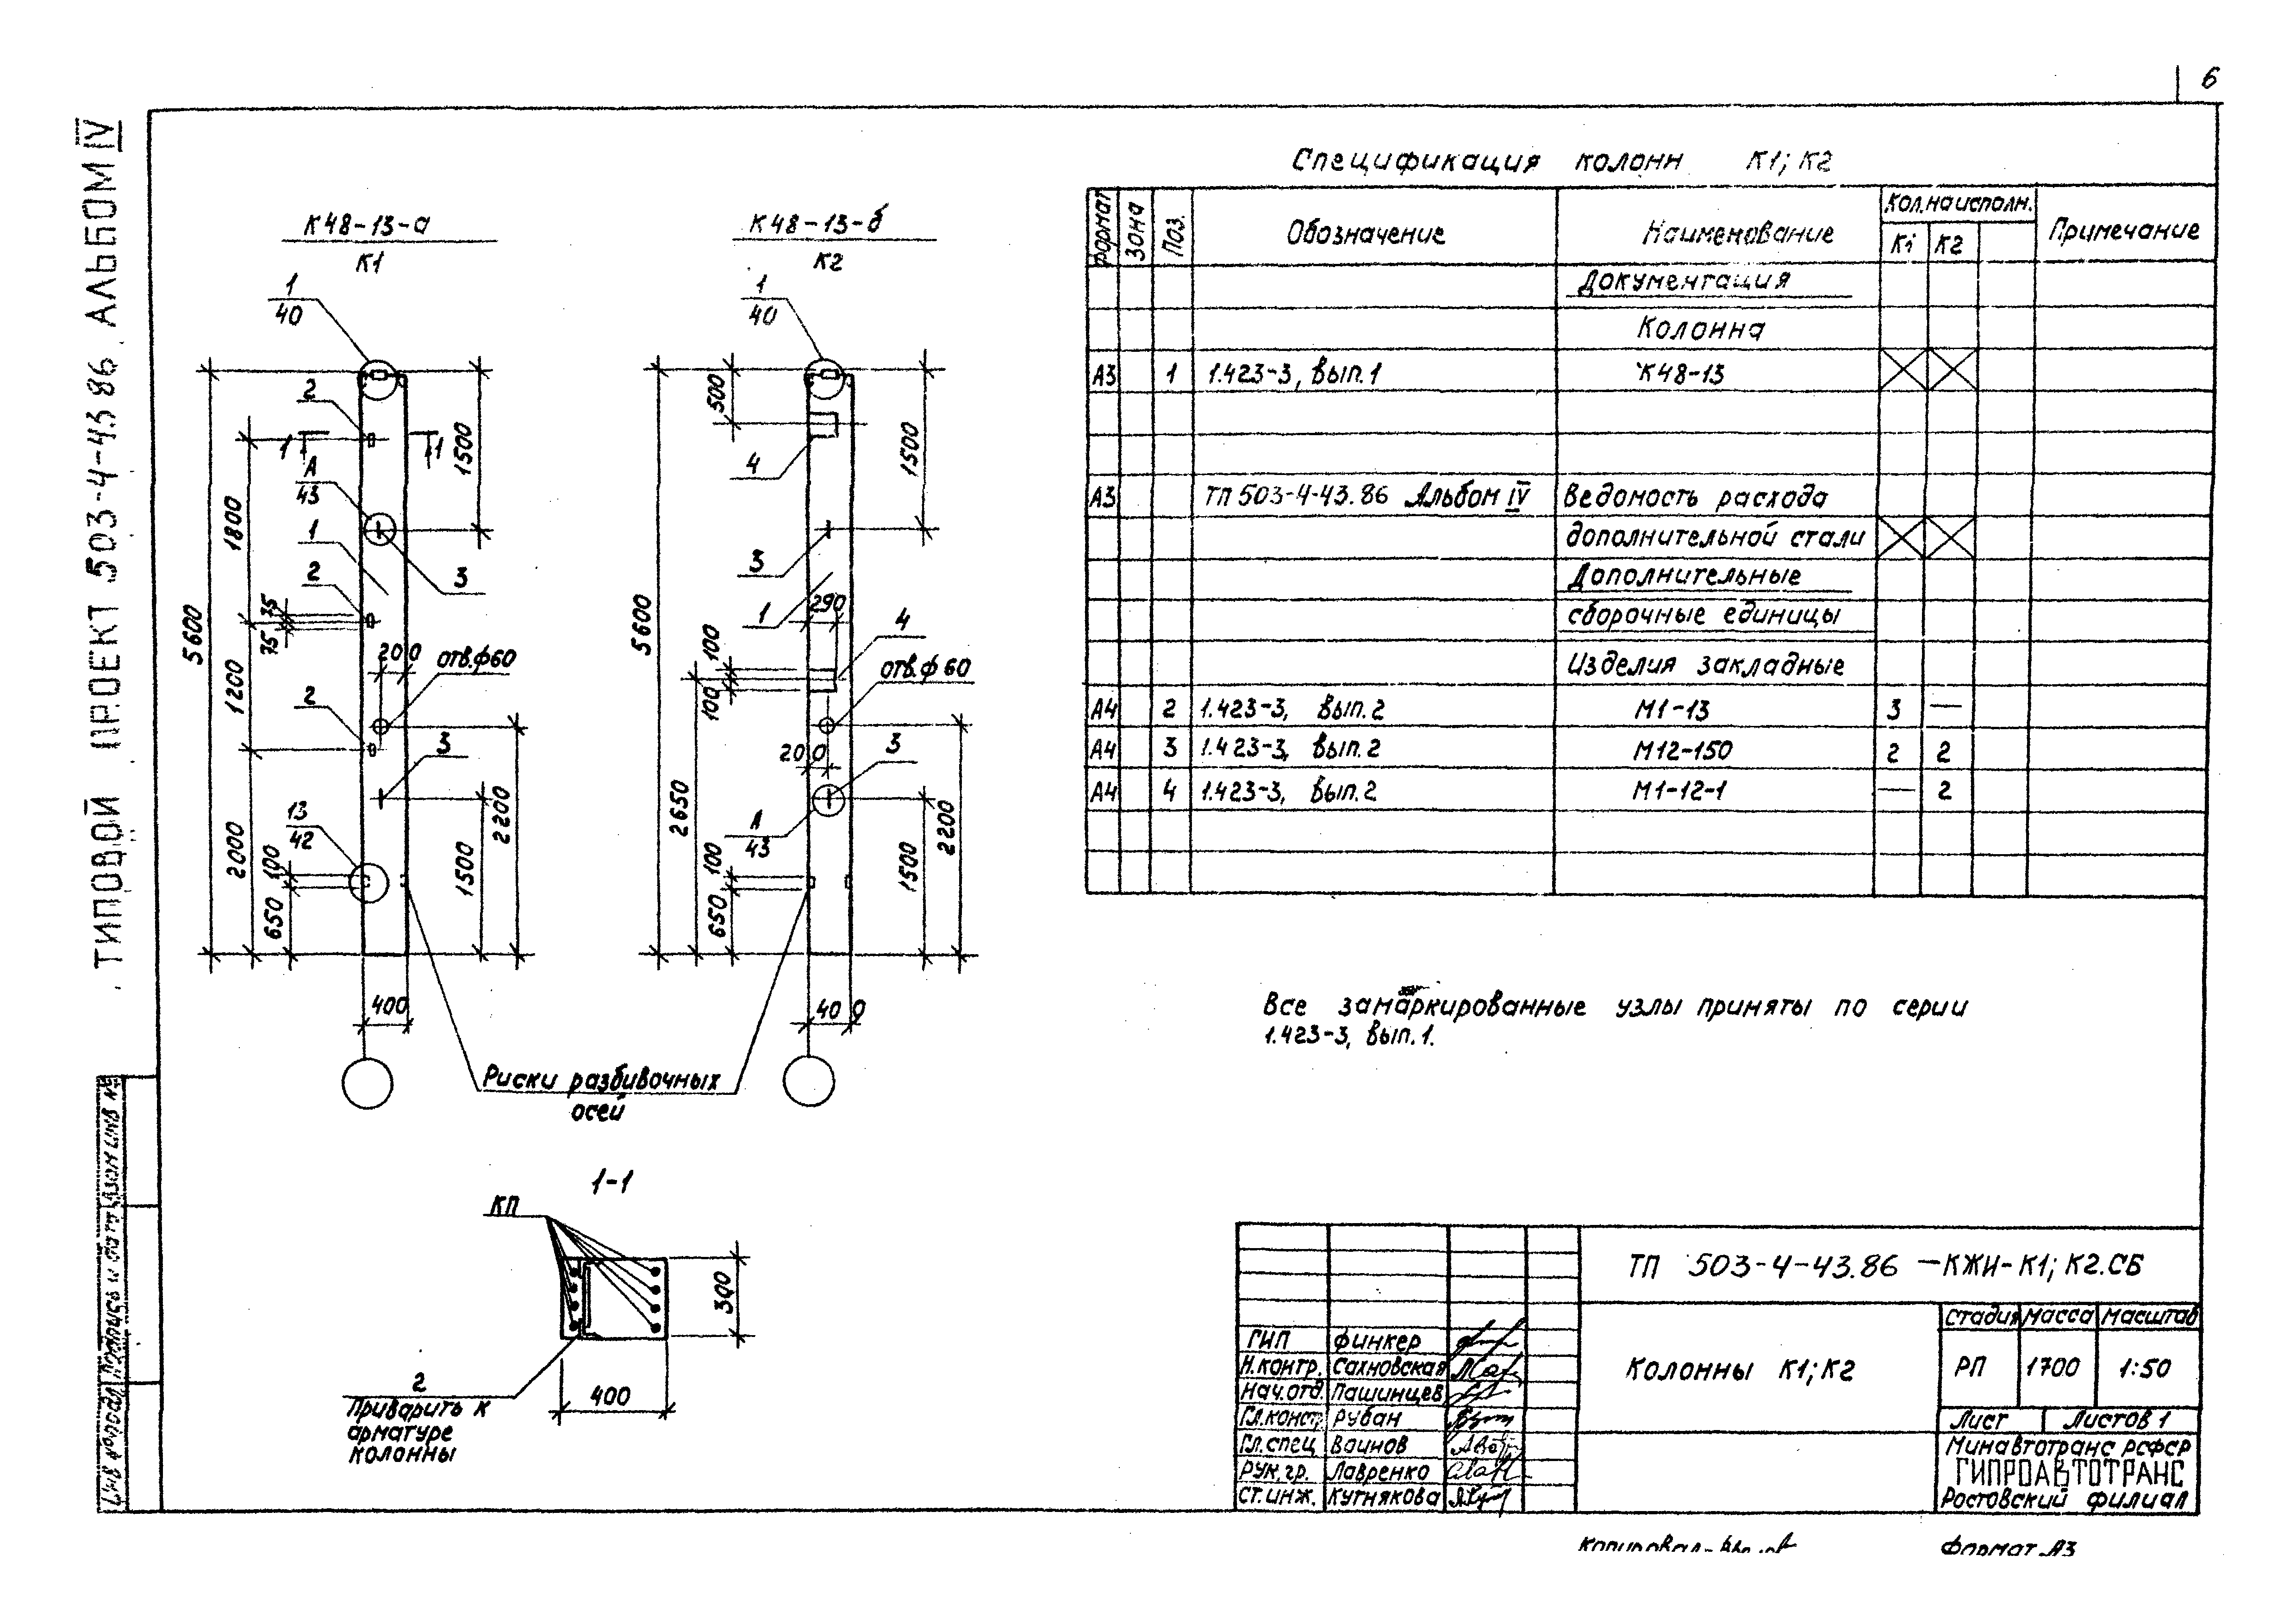 6
ТИПОВОЙ ПРОЕКТ 503-4-43.86 АЛЬБОМ IV
К48-13-а
К1
1
40
2
1
1
А
43
1
2
3
200
отв.ф60
2
3
13
42
5600
1800
1200
2000
75
75
100
650
1500
1500
2200
400
К48-13-б
К2
1
40
500
4
3
1
290
4
отв.ф60
200
3
А
43
5600
100
100
2650
100
650
1500
1500
2200
400
Риски разбивочных
осей
1-1
КП
300
400
2
Приварить к
арматуре
колонны
Спецификация колонн К1; К2
Формат Зона Поз. Обозначение Наименование Кол. на исполн. Примечание
К1 К2
Документация
Колонна
А3 1 1.423-3, вып.1 К48-13
А3 ТП 503-4-43.86 Альбом IV Ведомость расхода
дополнительной стали
Дополнительные
сборочные единицы
Изделия закладные
А4 2 1.423-3, вып.2 М1-13 3 —
А4 3 1.423-3, вып.2 М12-150 2 2
А4 4 1.423-3, вып.2 М1-12-1 — 2
Все замаркированные узлы приняты по серии
1.423-3, вып.1.
ТП 503-4-43.86 -КЖИ-К1; К2.СБ
Колонны К1; К2
Стадия Масса Масштаб
РП 1700 1:50
Лист Листов 1
Минавтотранс РСФСР
ГИПРОАВТОТРАНС
Ростовский филиал
ГИП Финкер
Н.контр. Сахновская
Нач.отд. Пашинцев
Гл.констр. Рубан
Гл.спец Воинов
Рук.гр. Лавренко
Ст.инж. Кутнякова
Инв № подл. Подпись и дата Взам инв №
Копировал-
Формат А3